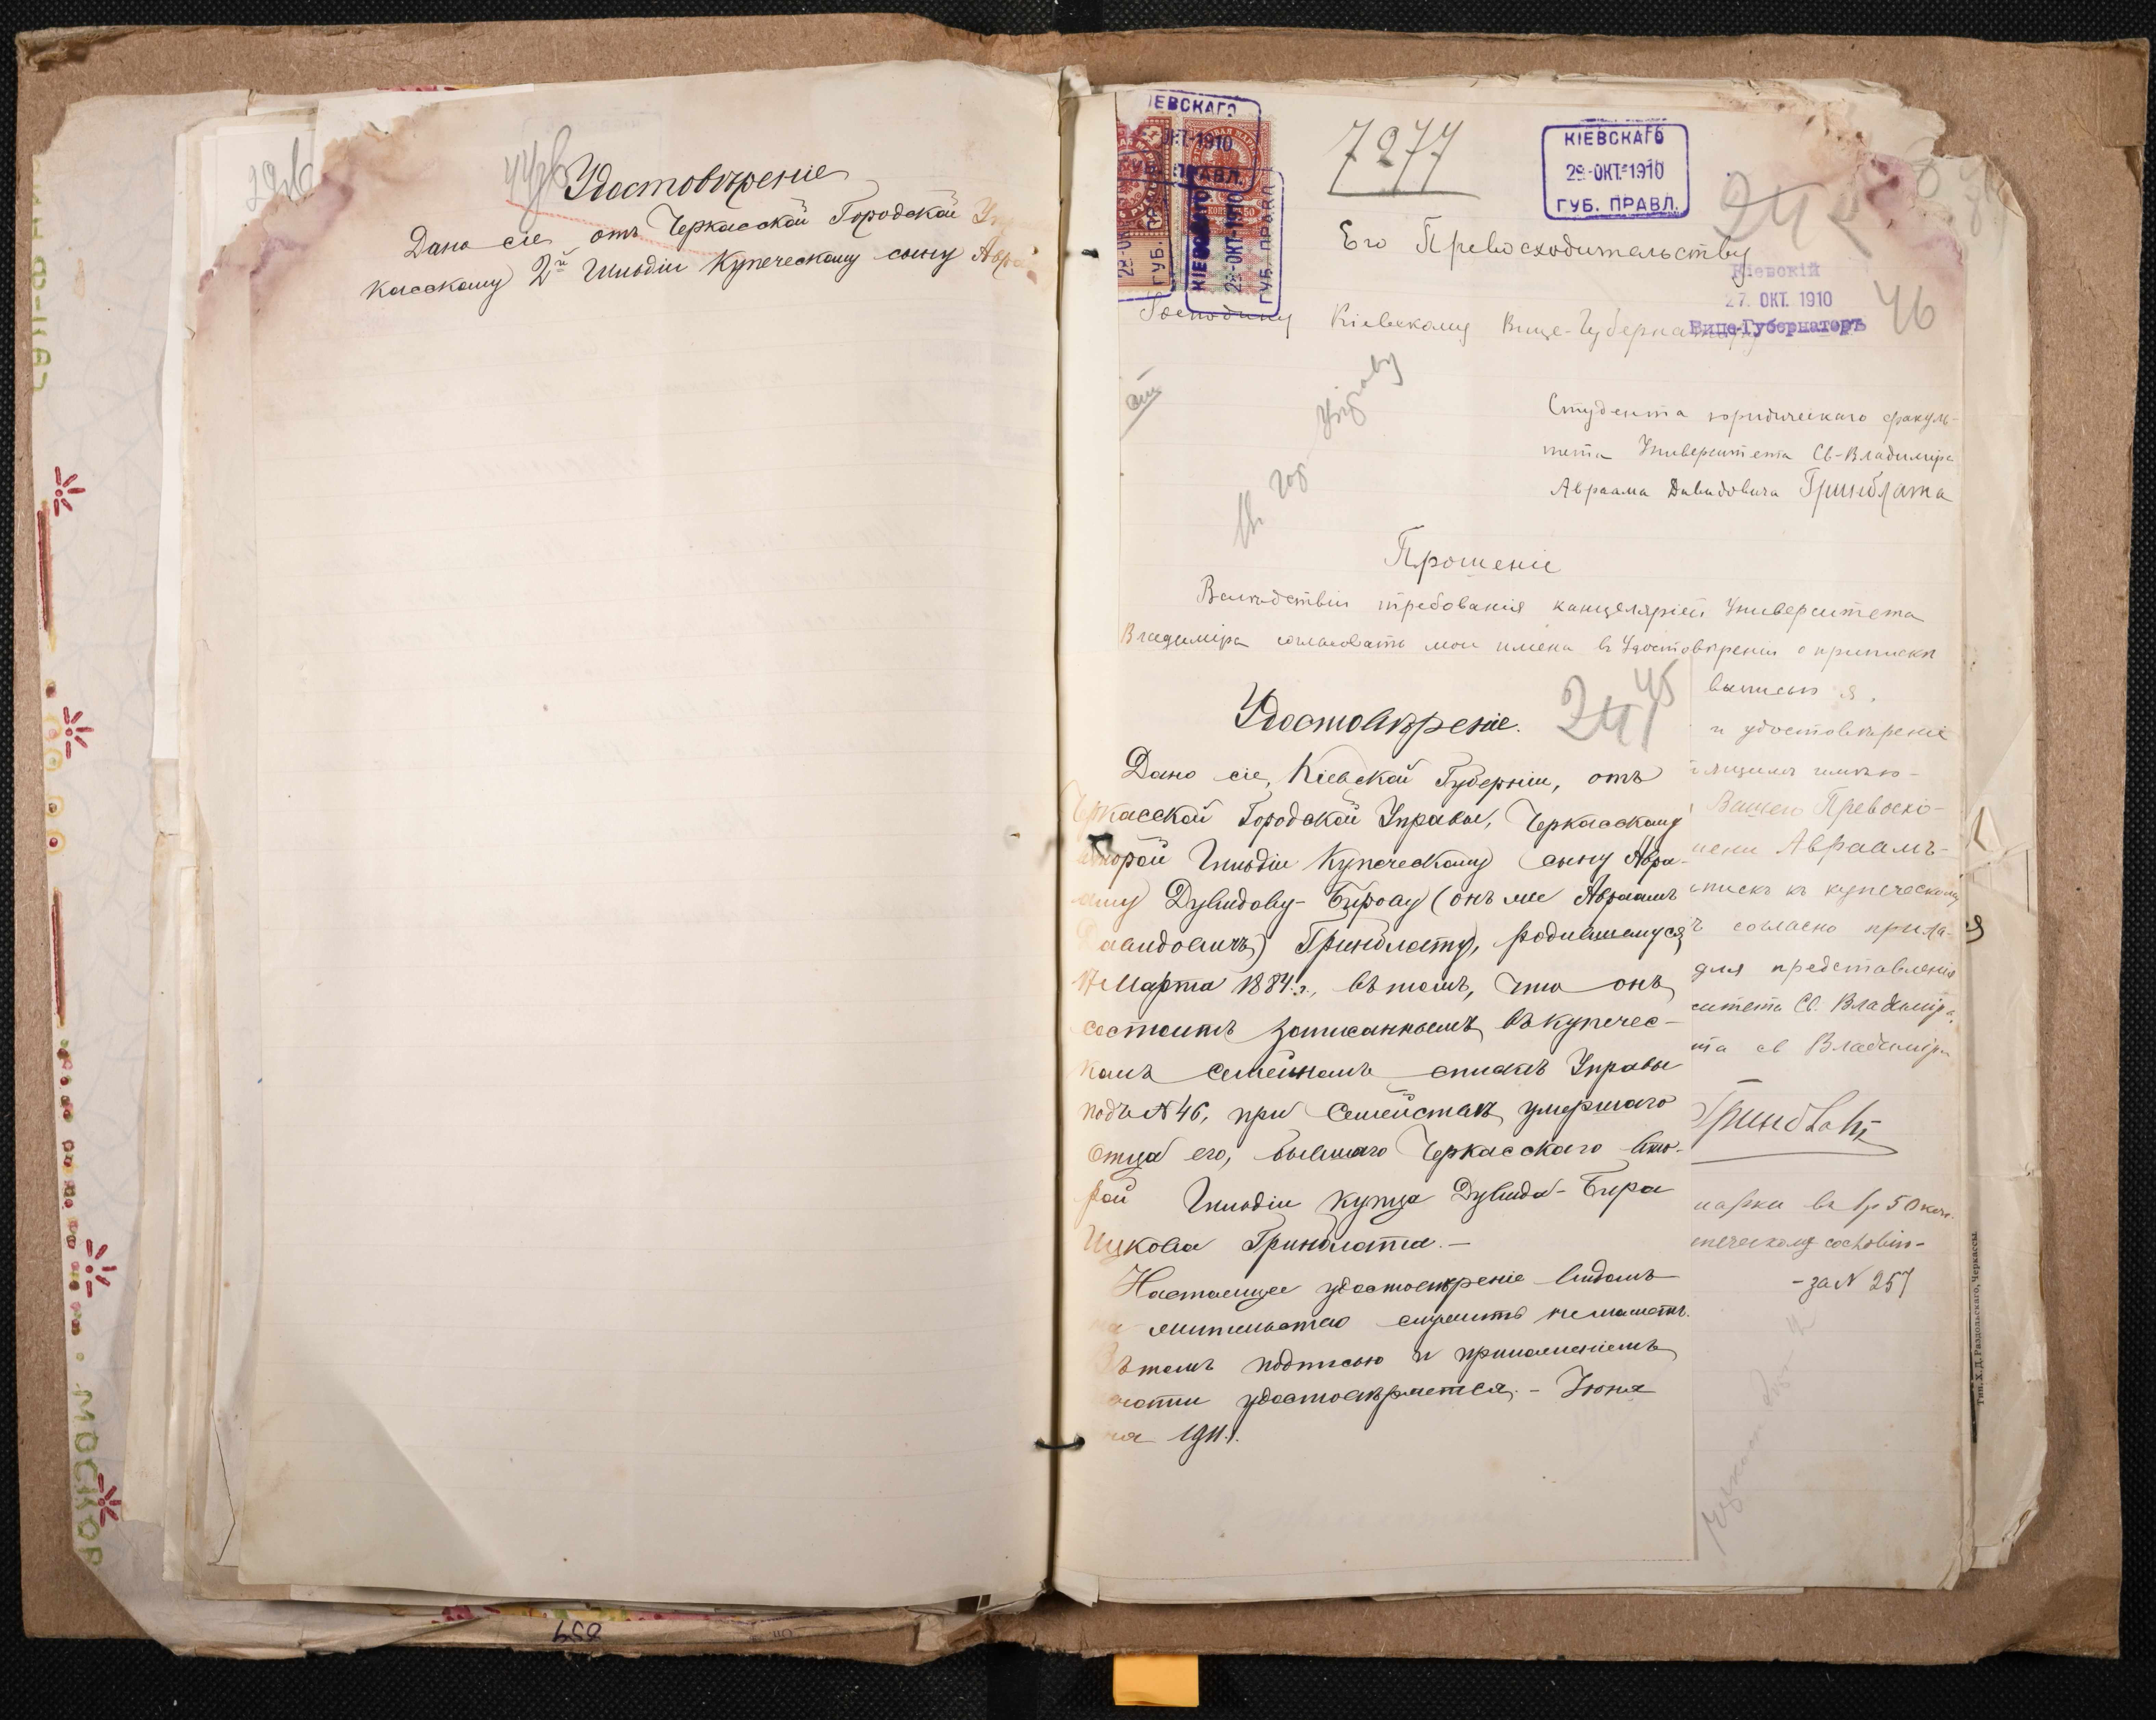 Удостовѣреніе
Дано сіе, отъ Черкасской Городской
касскому 2й Гильдіи Купеческому сыну Авра
7277
КІЕВСКАГО
29-ОКТ-1910
ГУБ. ПРАВЛ.
Его Превосходительству
Кіевскій
27. ОКТ. 1910
Вице-Губернаторъ
46
Господину Кіевскому Вице-Губернатору
Студента юридическаго факуль-
тета Университета Св-Владиміра
Авраама Давидовича Гринблата
Прошеніе
Вслѣдствіи требованія канцеляріей Университета
Владиміра согласовать мои имена въ Удостовѣреніи о припискѣ
и удостовѣреніе
Вашего Превосхо-
мени Авраамъ-
пискѣ къ купеческому
согласно прила-
для представленія
ситета Св. Владиміра.
та св Владиміра
Гринблатъ
марки въ 1р 50 коп.
печескому сословію-
-за N 257
Удостовѣреніе.
245
Дано сіе, Кіевской Губерніи, отъ
Черкасской Городской Управы, Черкасскому
второй Гильдіи Купеческому сыну Авра-
аму Дувидову-Бирову (онъ же Авраамъ
Давидовичъ) Гринблату, родившемуся
17 Марта 1884 г., въ томъ, что онъ
состоитъ записаннымъ въ купечес-
комъ семейномъ спискѣ Управы
подъ N 46, при семействѣ умершаго
отца его, бывшаго Черкасскаго Вто-
рой Гильдіи купца Дувида-Бира
Ицкова Гринблата.-
Настоящее удостовѣреніе видомъ
на жительство служить не можетъ.
Въ томъ подписью и приложеніемъ
печати удостовѣряется.- Іюня
1911 г.
Тип. Х. Д. Раздольскаго, Черкассы.
МОСКОВ
859